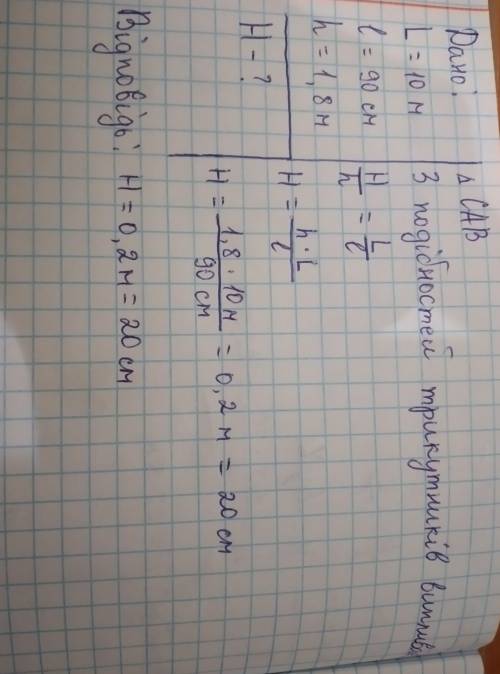 Дано:
L = 10 м
l = 90 см
h = 1,8 м
H - ?
Δ САВ
З подібностей трикутників
H/h = L/l
H = h · L/l
H = 1,8 · 10 м/90 см = 0,2 м = 20 см
Відповідь: H = 0,2 м = 20 см